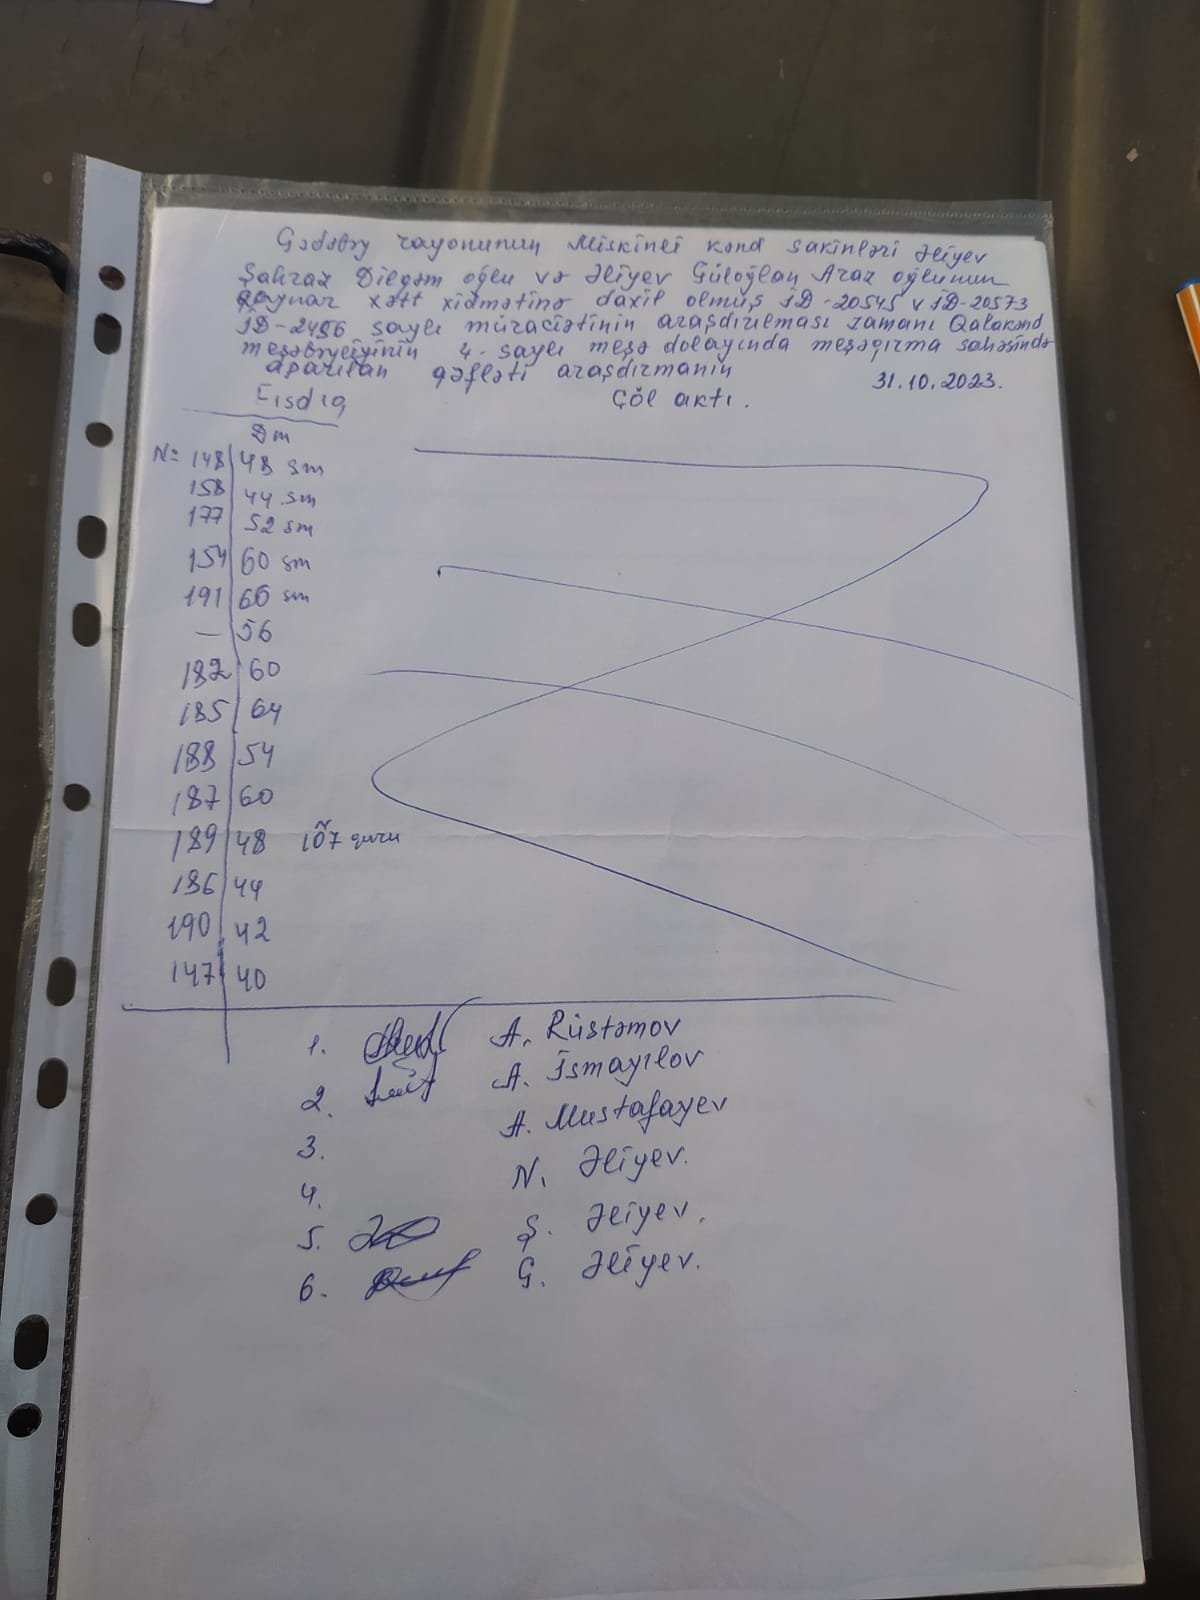 Gədəbəy rayonunun Miskinli kənd sakinləri Əliyev
Şahraz Dilqəm oğlu və Əliyev Güloğlan Araz oğlunun
qaynar xətt xidmətinə daxil olmuş İD-20545 v İD-20573
İD-2486 saylı müraciətinin araşdırılması zamanı Qalakənd
meşəbəyliyinin 4-saylı meşə dolayında meşəqırma sahəsində
aparılan qəfləti araşdırmanın
31.10.2023.
Fısdıq Çöl aktı.
Dm
N= 148 48 sm
158 44 sm
177 52 sm
154 60 sm
191 66 sm
— 56
182 60
185 64
188 54
187 60
189 48 quru
186 44
190 42
147 40
1. A. Rüstəmov
2. A. İsmayılov
3. A. Mustafayev
4. N. Əliyev.
5. Ş. Əliyev.
6. G. Əliyev.